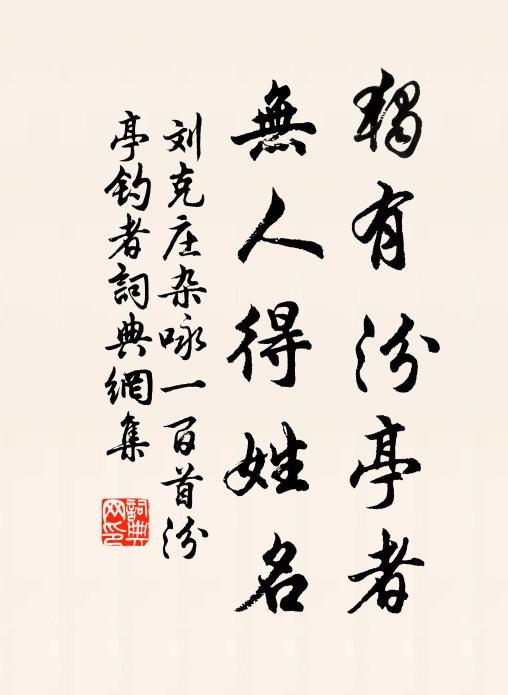 獨有汾亭者
無人得姓名
刘克庄杂咏一百首汾
亭钓者詞典網集
詞典
网印